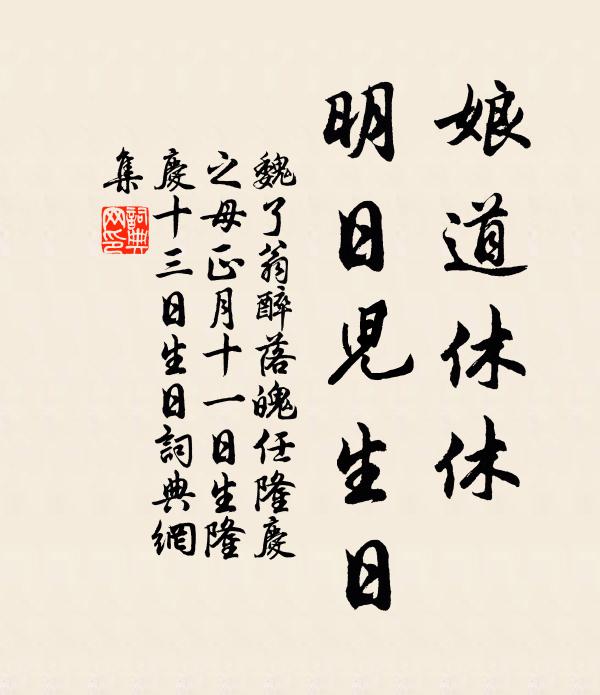 娘道休休
明日児生日
魏了翁醉落魄任隆慶
之母正月十一日生隆
慶十三日生日詞典網
集
詞典網印